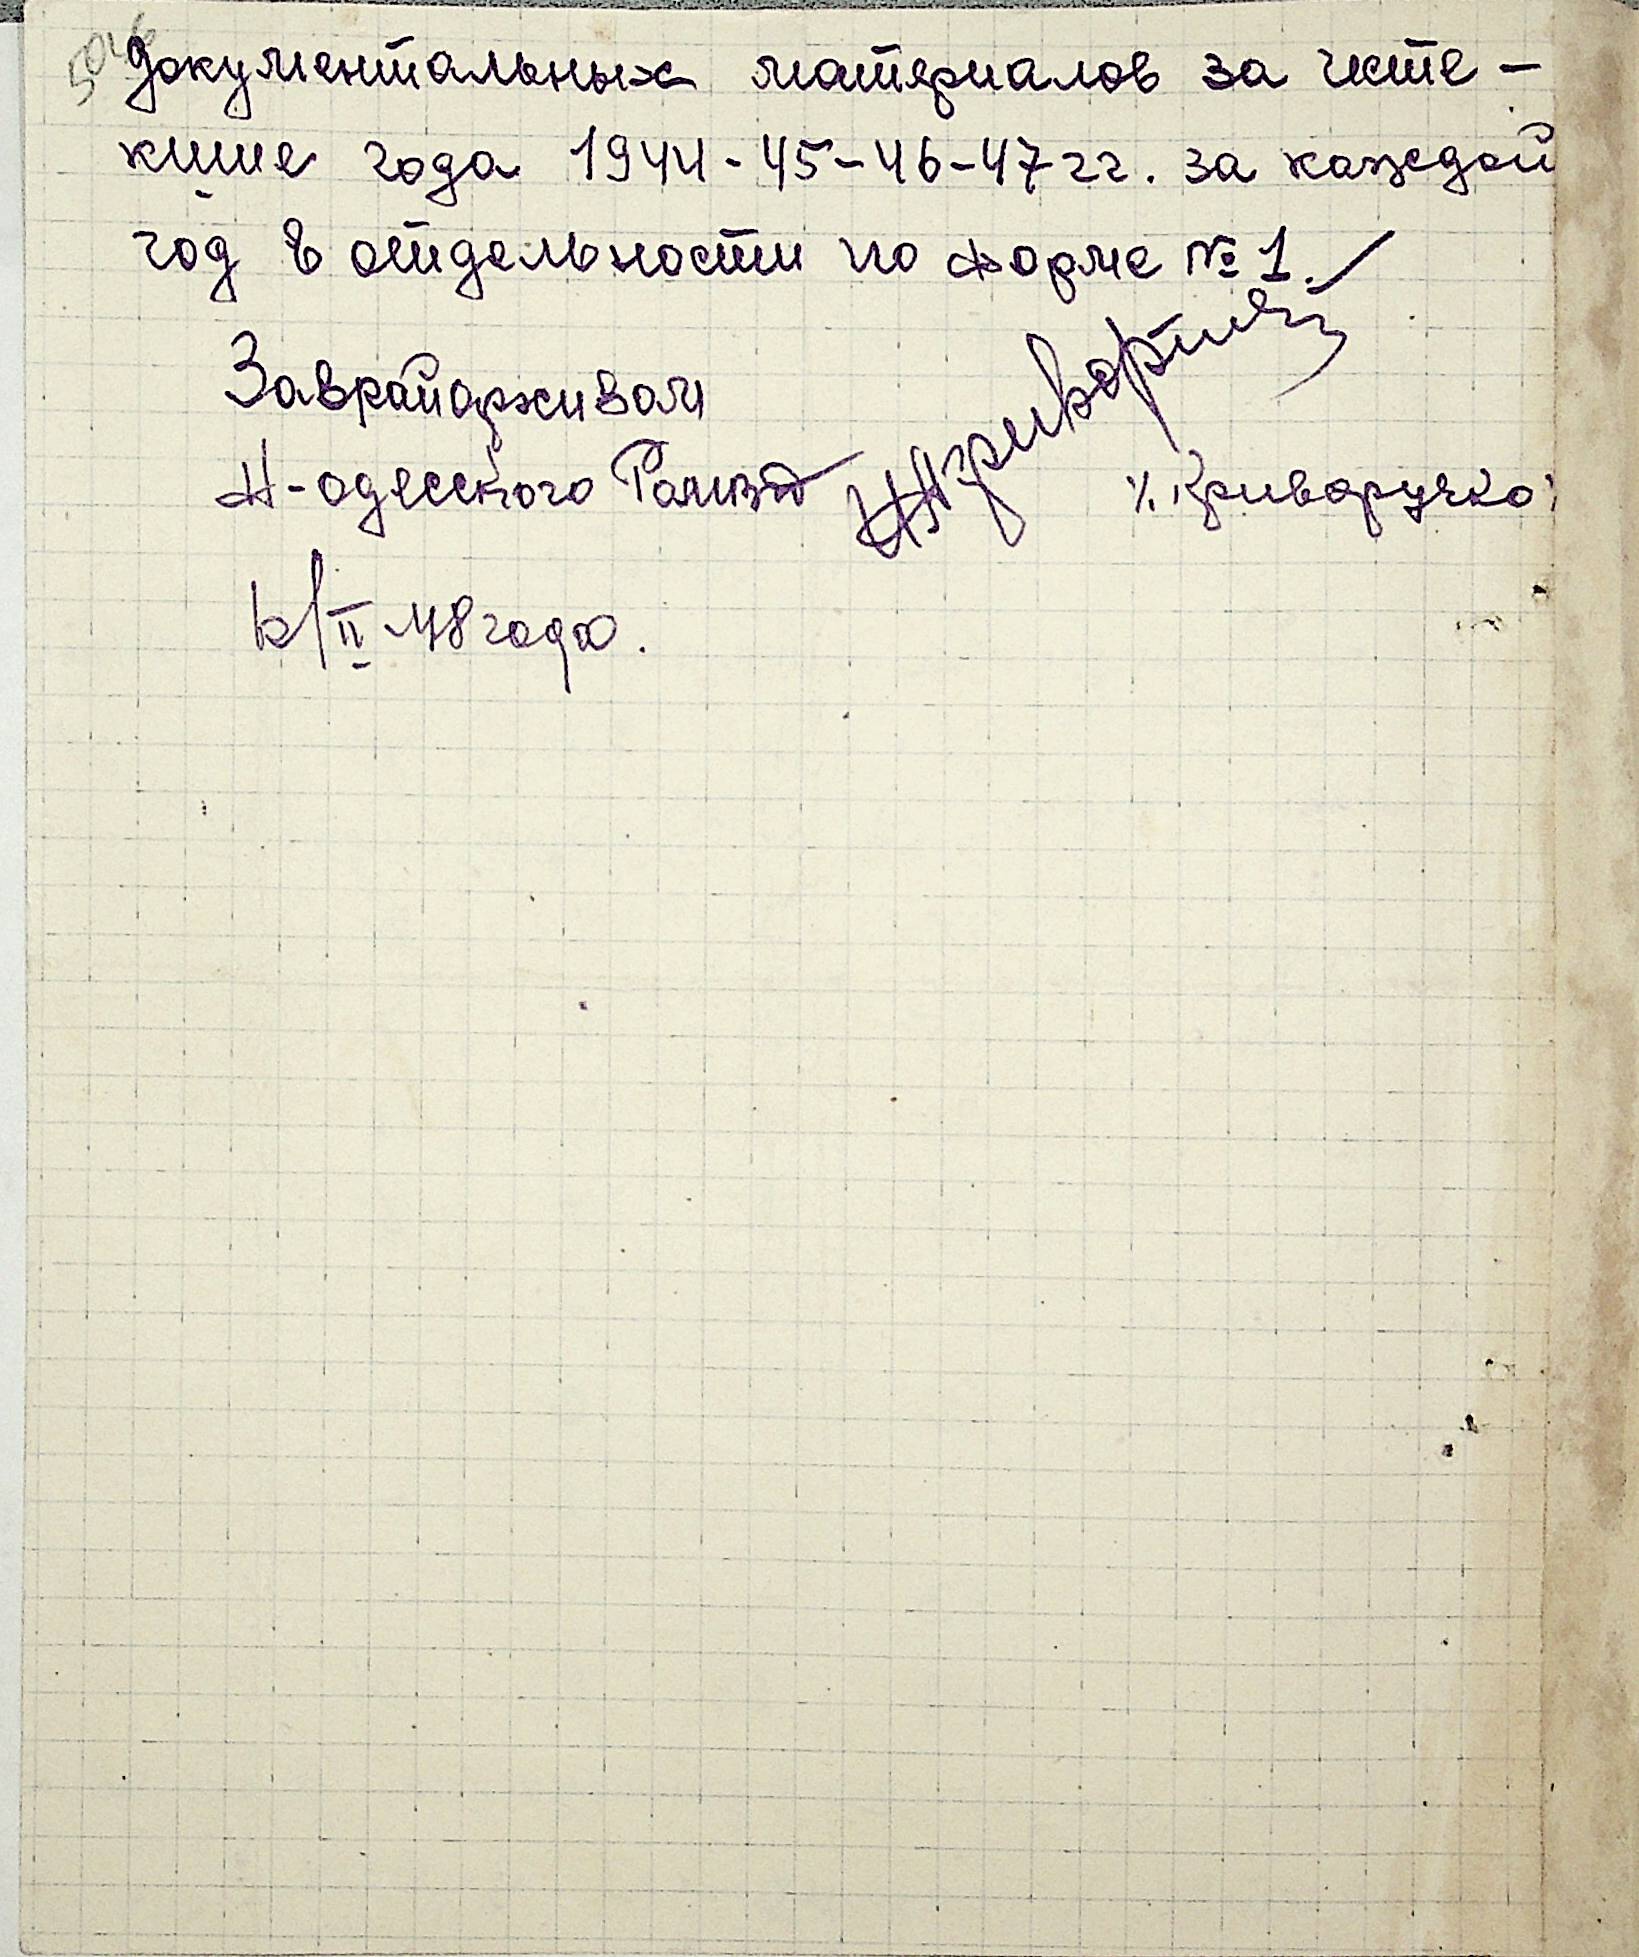 50 об
документальных материалов за исте-
кшие года 1944-45-46-47 гг. за каждой
год в отдельности по форме № 1.
Заврайархивом
Н-одесского /Криворучко/
/II-48 года.